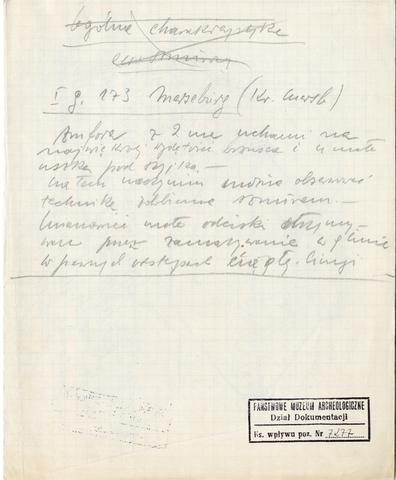 ogólne charakterystyka
I g. 173 Merseburg (Kr. Merseb)
Amfora z 2 ma uchami na
największej wydętości brzuśca i u małe
uszka pod szyjką.—
na tym naczyniu można obserwować
technikę zdobienia sznurem.—
mianowicie małe odciski otrzymy-
wano przez zanurzywanie w glinie
w pewnych odstępach ciągłej lingi
PAŃSTWOWE MUZEUM ARCHEOLOGICZNE
Dział Dokumentacji
Ks. wpływu poz. Nr 7277